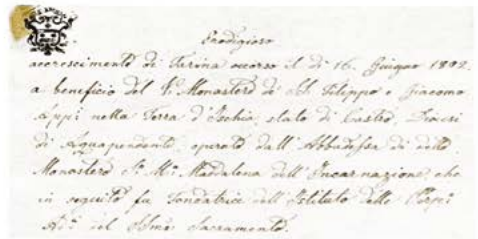 Prodigioso
accrescimento di Farina occorso il dì 16. Giugno 1802.
a beneficio del V. Monastero di SS. Filippo e Giacomo
App.i nella Terra d'Ischia, stato di Castro, Diocesi
di Acquapendente, operato dall'Abbadessa di detto
Monastero Sr. Ma. Maddalena dell'Incarnazione, che
in seguito fu Fondatrice dell'Istituto delle Perpe
Adi del SSmo Sacramento.